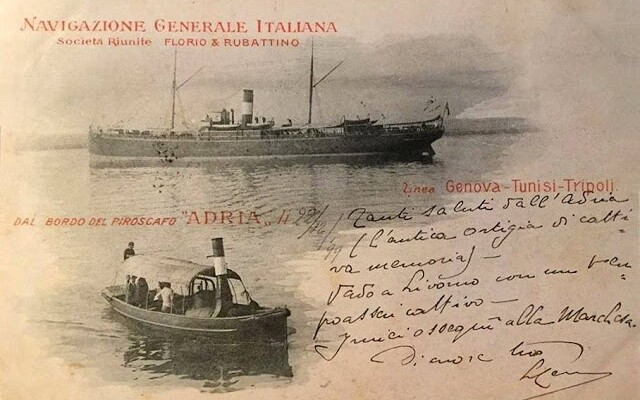 NAVIGAZIONE GENERALE ITALIANA
Società Riunite FLORIO & RUBATTINO
Linea Genova-Tunisi-Tripoli.
DAL BORDO DEL PIROSCAFO "ADRIA„ li
Tanti saluti dall'Adria
(l'antica ortigia di catti-
va memoria) -
Vado a Livorno con un tem-
po assai cattivo -
I miei ossequi alla Marchesa
Di cuore tuo